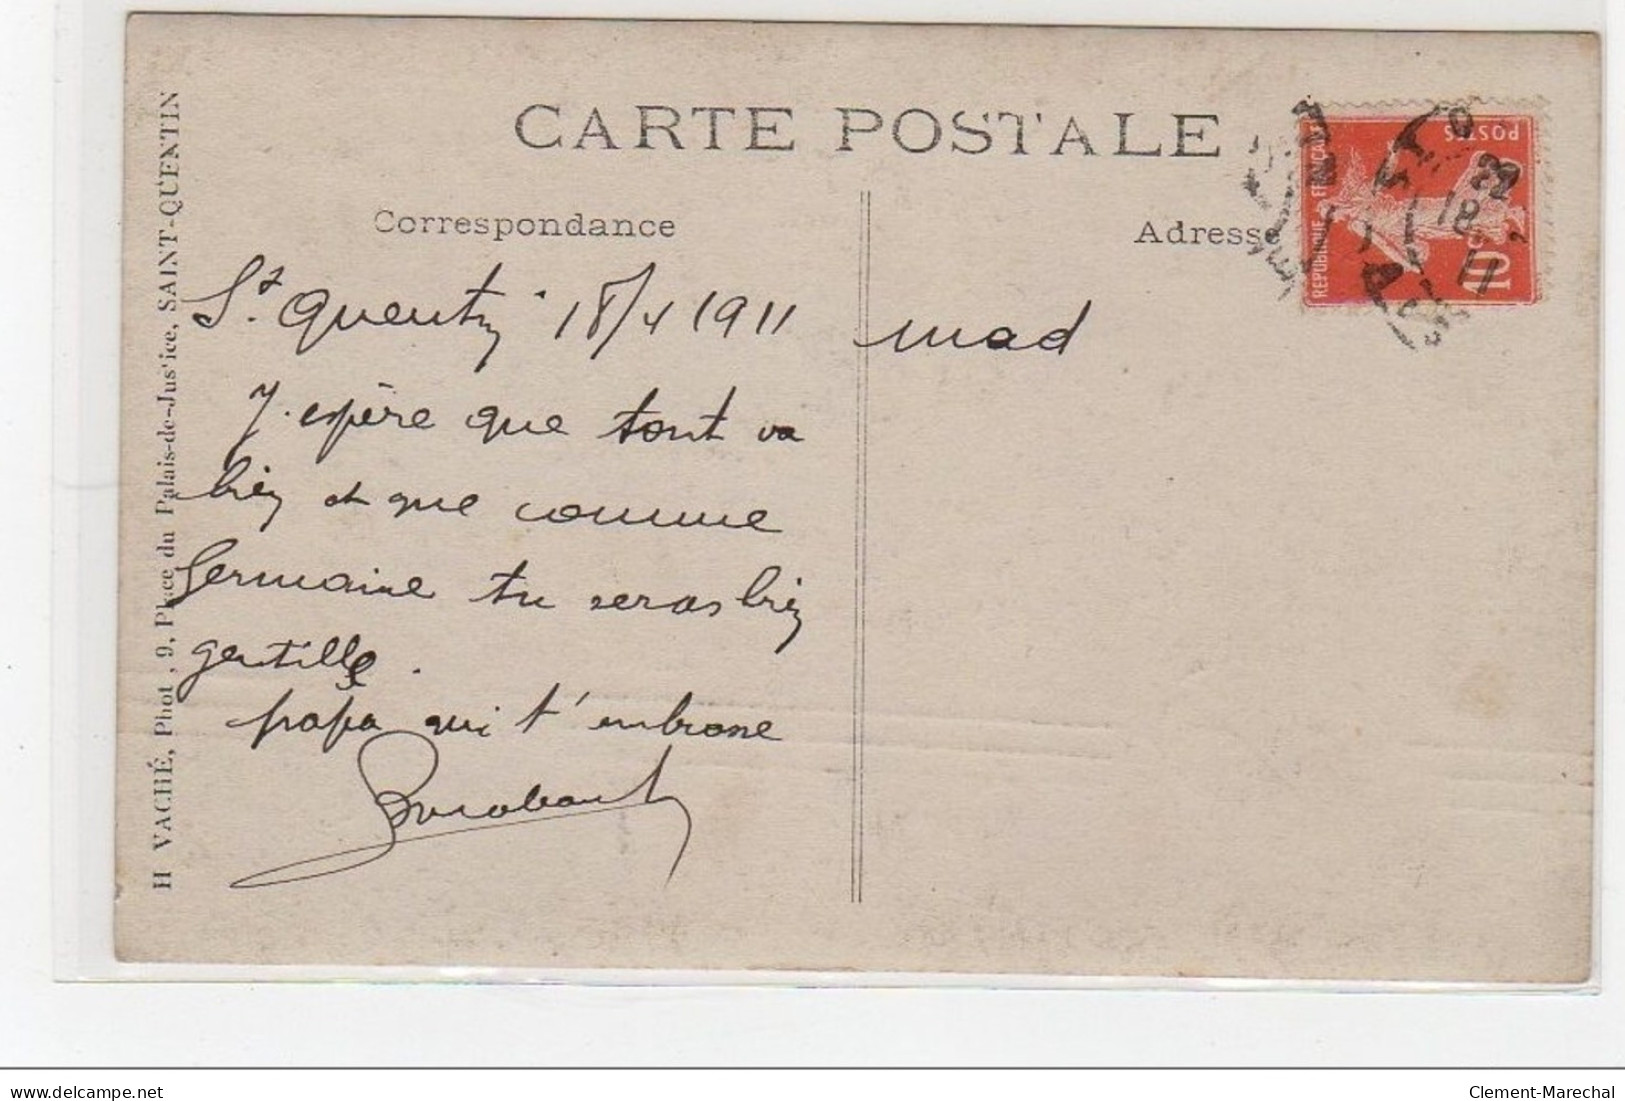 CARTE POSTALE
Correspondance
Adresse
St Quentin 18/4 1911
J. espère que tout va
bien et que comme
Germaine tu seras bien
gentille.
papa qui t'embrasse
mad
REPUBLIQUE FRANÇAISE
POSTES
10
H VACHÉ, Phot, 9, Place du Palais-de-Jus'ice, SAINT-QUENTIN
delcampe.net
Clement-Marechal